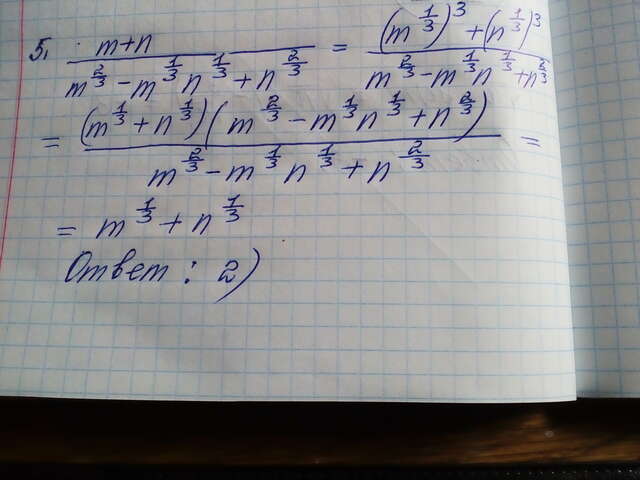 5. (m+n)/(m^(2/3) - m^(1/3) n^(1/3) + n^(2/3)) = ((m^(1/3))^3 + (n^(1/3))^3)/(m^(2/3) - m^(1/3) n^(1/3) + n^(2/3))
= ((m^(1/3) + n^(1/3))(m^(2/3) - m^(1/3) n^(1/3) + n^(2/3)))/(m^(2/3) - m^(1/3) n^(1/3) + n^(2/3)) =
= m^(1/3) + n^(1/3)
Ответ : 2)